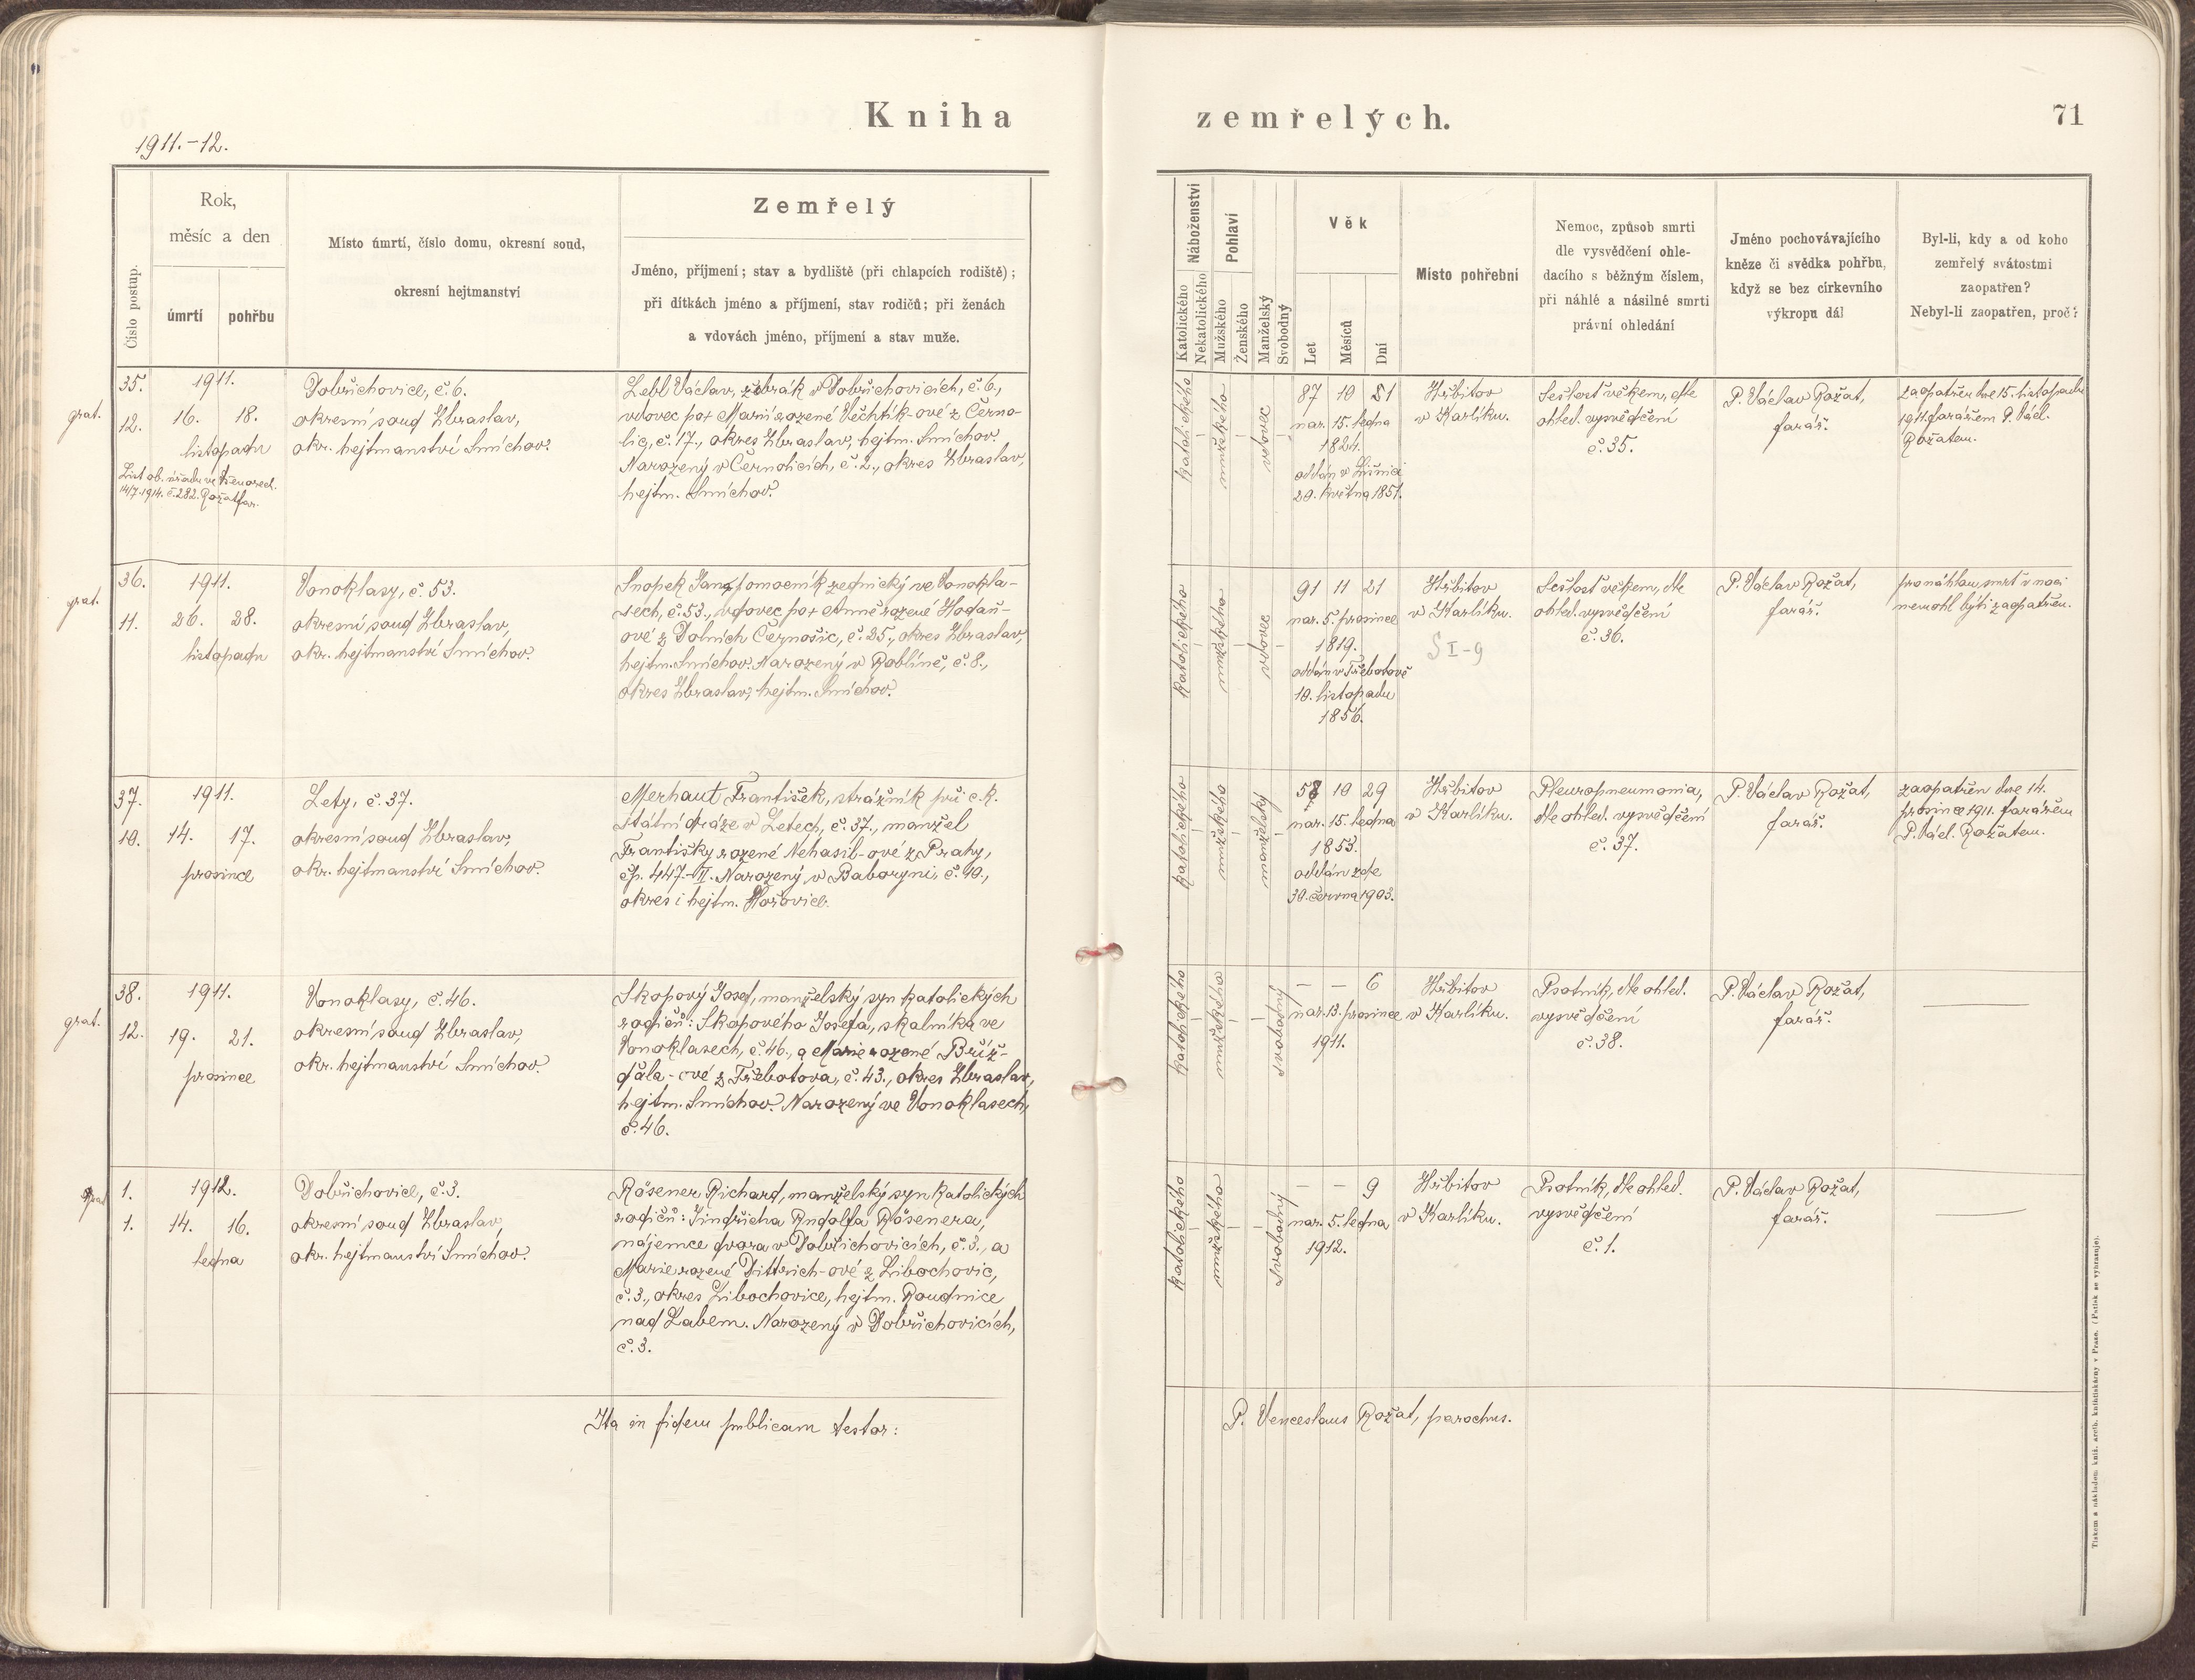 Kniha
zemřelých.
71
1911.-12.
Číslo postup.
Rok,
měsíc a den
úmrtí
pohřbu
Místo úmrtí, číslo domu, okresní soud,
okresní hejtmanství
Zemřelý
Jméno, příjmení; stav a bydliště (při chlapcích rodiště);
při dítkách jméno a příjmení, stav rodičů; při ženách
a vdovách jméno, příjmení a stav muže.
Náboženství
Katolického
Nekatolického
Pohlaví
Mužského
Ženského
Manželský
Svobodný
Věk
Let
Měsíců
Dní
Místo pohřební
Nemoc, způsob smrti
dle vysvědčení ohle-
dacího s běžným číslem,
při náhlé a násilné smrti
právní ohledání
Jméno pochovávajícího
kněze či svědka pohřbu,
když se bez církevního
výkropu dál
Byl-li, kdy a od koho
zemřelý svátostmi
zaopatřen?
Nebyl-li zaopatřen, proč?
grat.
35.
12.
1911.
16. 18.
listopadu
List ob. úřadu ve
14/7.1914. č.282. Rožat far.
Dobřichovice, č. 6.
okresní soud Zbraslav,
okr. hejtmanství Smíchov.
Lebl Václav, žebrák v Dobřichovicích, č. 6.,
vdovec po + Marii rozené Vechtík-ové z Černo-
lic, č. 17., okres Zbraslav, hejtm. Smíchov.
Narozený v Černolicích, č. 2., okres Zbraslav,
hejtm. Smíchov.
katolického
mužského
vdovec
87 10 1
nar. 15. ledna
1824.
oddán v Líšnici
20. května 1851.
Hřbitov
v Karlíku.
Sešlosť věkem, dle
ohled. vysvědčení
č. 35.
P. Václav Rožat,
farář.
zaopatřen dne 15. listopadu
1911 farářem P. Václ.
Rožatem.
grat.
36.
11.
1911.
26. 28.
listopadu
Vonoklasy, č. 53.
okresní soud Zbraslav,
okr. hejtmanství Smíchov.
Snopek Jan, pomocník zednický ve Vonokla-
sech, č. 53., vdovec po + Anně rozené Hodaň-
ové z Dolních Černošic, č. 25., okres Zbraslav,
hejtm. Smíchov. Narozený v Roblíně, č. 8.,
okres Zbraslav, hejtm. Smíchov.
katolického
mužského
vdovec
91 11 21
nar. 5. prosince
1819.
oddán v Třebotově
10. listopadu
1856.
Hřbitov
v Karlíku.
S I-9
Sešlosť věkem, dle
ohled. vysvědčení
č. 36.
P. Václav Rožat,
farář.
pro náhlou smrť v noci
nemohl býti zaopatřen.
37.
10.
1911.
14. 17.
prosince
Lety, č. 37.
okresní soud Zbraslav,
okr. hejtmanství Smíchov.
Merhaut František, strážník při c. k.
státní dráze v Letech, č. 37., manžel
Františky rozené Nehasil-ové z Prahy,
čp. 447.-II. Narozený v Bavoryni, č. 10.,
okres i hejtm. Hořovice.
katolického
mužského
manželský
58 10 29
nar. 15. ledna
1853.
oddán zde
30. června 1903.
Hřbitov
v Karlíku.
Pleuropneumonia,
dle ohled. vysvědčení
č. 37.
P. Václav Rožat,
farář.
zaopatřen dne 14.
prosince 1911. farářem
P. Václ. Rožatem.
grat.
38.
12.
1911.
19. 21.
prosince
Vonoklasy, č. 46.
okresní soud Zbraslav,
okr. hejtmanství Smíchov.
Skopový Josef, manželský syn katolických
rodičů: Skopového Josefa, skalníka ve
Vonoklasech, č. 46., a Marie rozené Bříž-
ďala-ové z Třebotova, č. 43., okres Zbraslav,
hejtm. Smíchov. Narozený ve Vonoklasech,
č. 46.
katolického
mužského
svobodný
— — 6
nar. 13. prosince
1911.
Hřbitov
v Karlíku.
Psotník, dle ohled.
vysvědčení
č. 38.
P. Václav Rožat,
farář.
grat.
1.
1.
1912.
14. 16.
ledna
Dobřichovice, č. 3.
okresní soud Zbraslav,
okr. hejtmanství Smíchov.
Rösener Richard, manželský syn katolických
rodičů: Jindřicha Rudolfa Rösenera,
nájemce dvora v Dobřichovicích, č. 3., a
Marie rozené Dittrich-ové z Libochovic,
č. 3., okres Libochovice, hejtm. Roudnice
nad Labem. Narozený v Dobřichovicích,
č. 3.
katolického
mužského
svobodný
— — 9
nar. 5. ledna
1912.
Hřbitov
v Karlíku.
Psotník, dle ohled.
vysvědčení
č. 1.
P. Václav Rožat,
farář.
Ita in fidem publicam testor:
P. Venceslaus Rožat, parochus.
Tiskem a nákladem kníž. arcib. knihtiskárny v Praze. (Patisk se vyhrazuje).